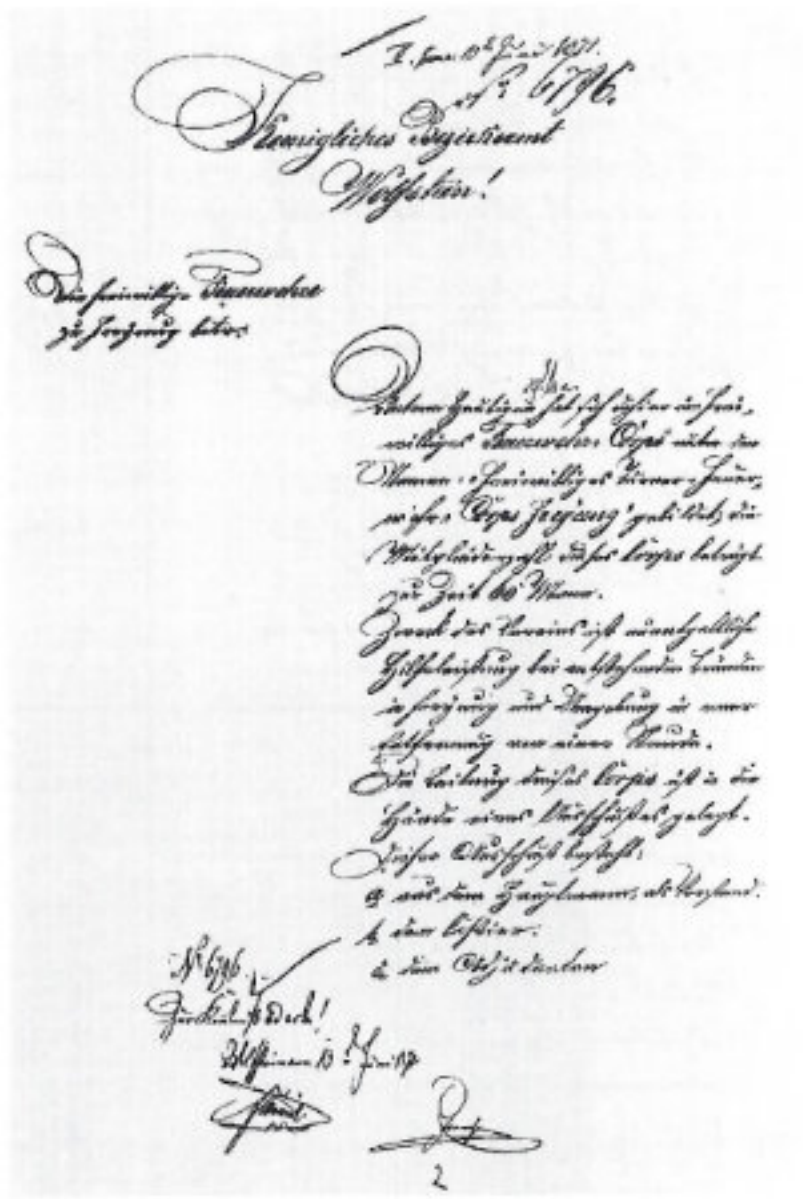 Juni 1871.
No 6796.
Koenigliches Bezirksamt
Wolfstein!
Die freiwillige Feuerwehr
zu Freyung betr.
Unterm Heutigen hat sich dahier ein frei-
williges Feuerwehr-Corps unter dem
Namen „Freiwilliges Turner-Feuer-
wehr-Corps Freyung" gebildet, die
Mitgliederzahl dieses Corps beträgt
zur Zeit 60 Mann.
Zweck des Vereins ist unentgeltliche
Hilfeleistung bei entstehenden Bränden
in Freyung und Umgebung in einer
Entfernung von einer Stunde.
Die Leitung dieses Corps ist in die
Hände eines Ausschußes gelegt.
Dieser Ausschuß besteht:
a, aus dem Hauptmann, als Vorstand.
b, dem Cassier.
c, dem Adjutanten
No 6796
Zur Kenntniß ad acta!
Wolfstein am 13 Juni
2